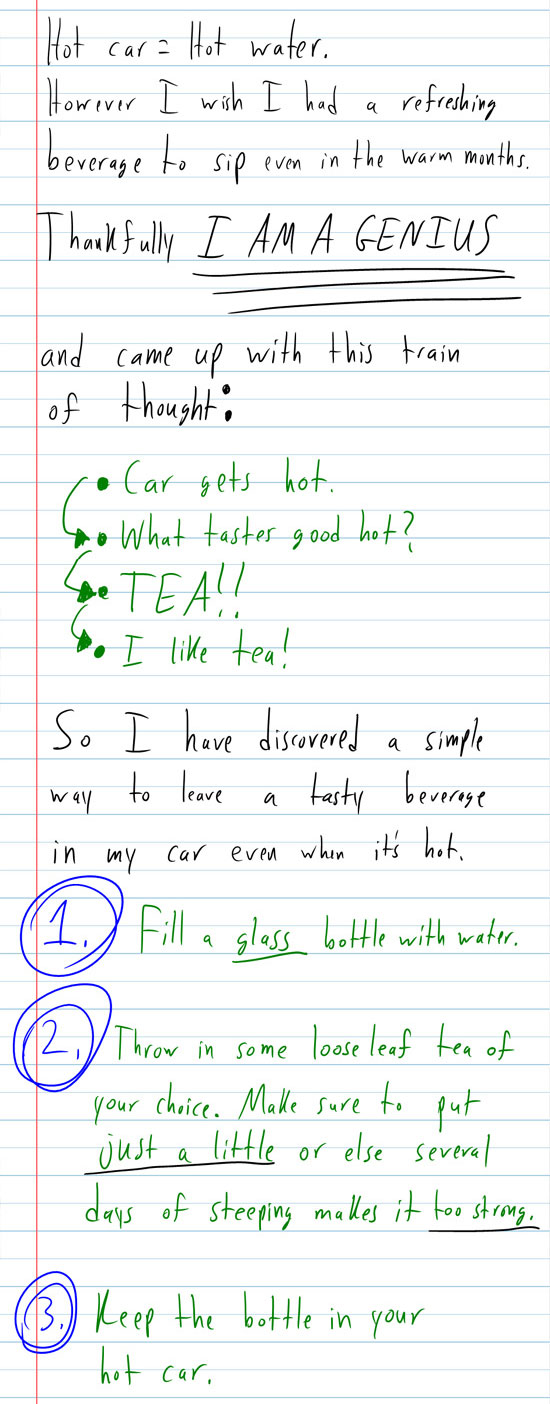 Hot car = Hot water.
However I wish I had a refreshing
beverage to sip even in the warm months.
Thankfully I AM A GENIUS
and came up with this train
of thought:
• Car gets hot.
• What tastes good hot?
• TEA!!
• I like tea!
So I have discovered a simple
way to leave a tasty beverage
in my car even when it's hot.
1. Fill a glass bottle with water.
2. Throw in some loose leaf tea of
your choice. Make sure to put
just a little or else several
days of steeping makes it too strong.
3. Keep the bottle in your
hot car.